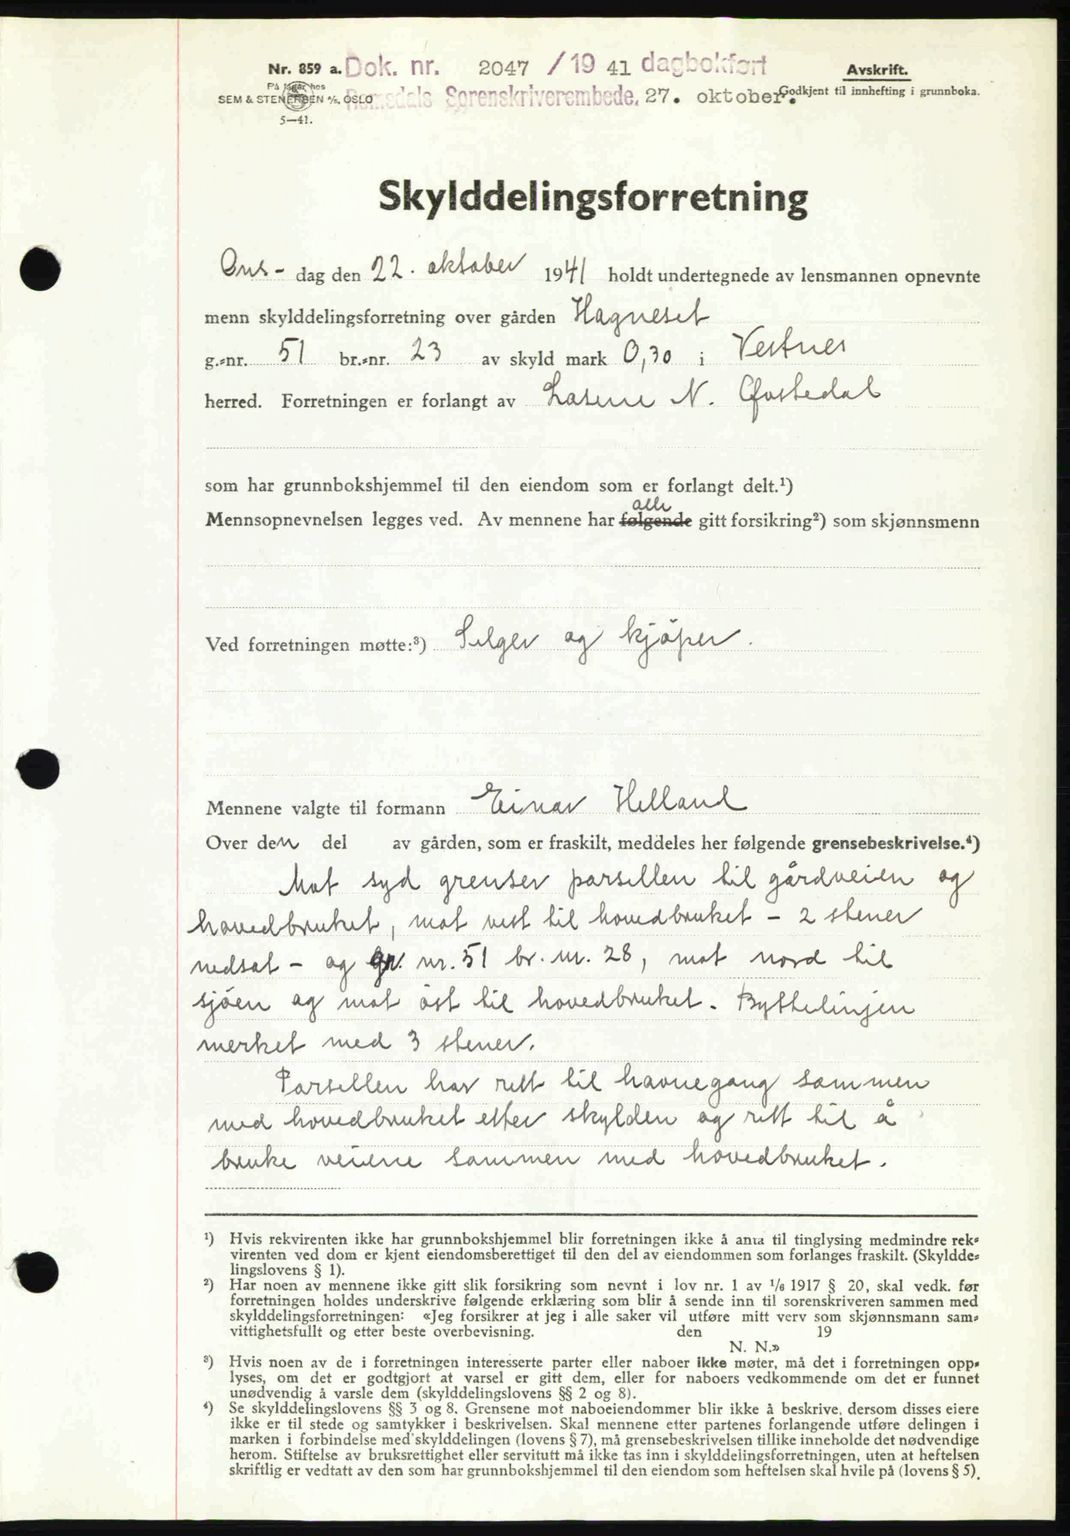 Nr. 859 a. Dok. nr. 2047 /19 41 dagbokført Avskrift.
På lager hos
SEM & STENERSEN A/S, OSLO Romsdals Sorenskriverembede, 27. oktober. Godkjent til innhefting i grunnboka.
5—41.
Skylddelingsforretning
Ons- dag den 22. oktober 1941 holdt undertegnede av lensmannen opnevnte
menn skylddelingsforretning over gården Hagneset
g.-nr. 51 br.-nr. 23 av skyld mark 0,30 i Vestnes
herred. Forretningen er forlangt av Lasine N. Øvstedal
som har grunnbokshjemmel til den eiendom som er forlangt delt.¹)
alle
Mennsopnevnelsen legges ved. Av mennene har følgende gitt forsikring²) som skjønnsmenn
Ved forretningen møtte:³) Selger og kjöper.
Mennene valgte til formann Einar Helland
Over den del av gården, som er fraskilt, meddeles her følgende grensebeskrivelse.⁴)
Mot syd grenser parsellen til gårdveien og
hovedbruket, mot vest til hovedbruket - 2 stener
nedsat - og gr. nr. 51 br. nr. 28, mot nord til
sjöen og mot öst til hovedbruket. Byttelinjen
merket med 3 stener.
Parsellen har rett til havnegang sammen
med hovedbruket etter skylden og rett til å
bruke veiene sammen med hovedbruket.
¹) Hvis rekvirenten ikke har grunnbokshjemmel blir forretningen ikke å anta til tinglysing medmindre rek-
virenten ved dom er kjent eiendomsberettiget til den del av eiendommen som forlanges fraskilt. (Skyldde-
lingslovens § 1).
²) Har noen av mennene ikke gitt slik forsikring som nevnt i lov nr. 1 av 1/6 1917 § 20, skal vedk. før
forretningen holdes underskrive følgende erklæring som blir å sende inn til sorenskriveren sammen med
skylddelingsforretningen: «Jeg forsikrer at jeg i alle saker vil utføre mitt verv som skjønnsmann sam-
vittighetsfullt og etter beste overbevisning. den 19
N. N.»
³) Hvis noen av de i forretningen interesserte parter eller naboer ikke møter, må det i forretningen opp-
lyses, om det er godtgjort at varsel er gitt dem, eller for naboers vedkommende om det er funnet
unødvendig å varsle dem (skylddelingslovens §§ 2 og 8).
⁴) Se skylddelingslovens §§ 3 og 8. Grensene mot naboeiendommer blir ikke å beskrive, dersom disses eiere
ikke er til stede og samtykker i beskrivelsen. Skal mennene etter partenes forlangende utføre delingen i
marken i forbindelse med skylddelingen (lovens § 7), må grensebeskrivelsen tillike inneholde det nødvendige
herom. Stiftelse av bruksrettighet eller servitutt må ikke tas inn i skylddelingsforretningen, uten at heftelsen
skriftlig er vedtatt av den som har grunnbokshjemmel til den eiendom som heftelsen skal hvile på (lovens § 5).